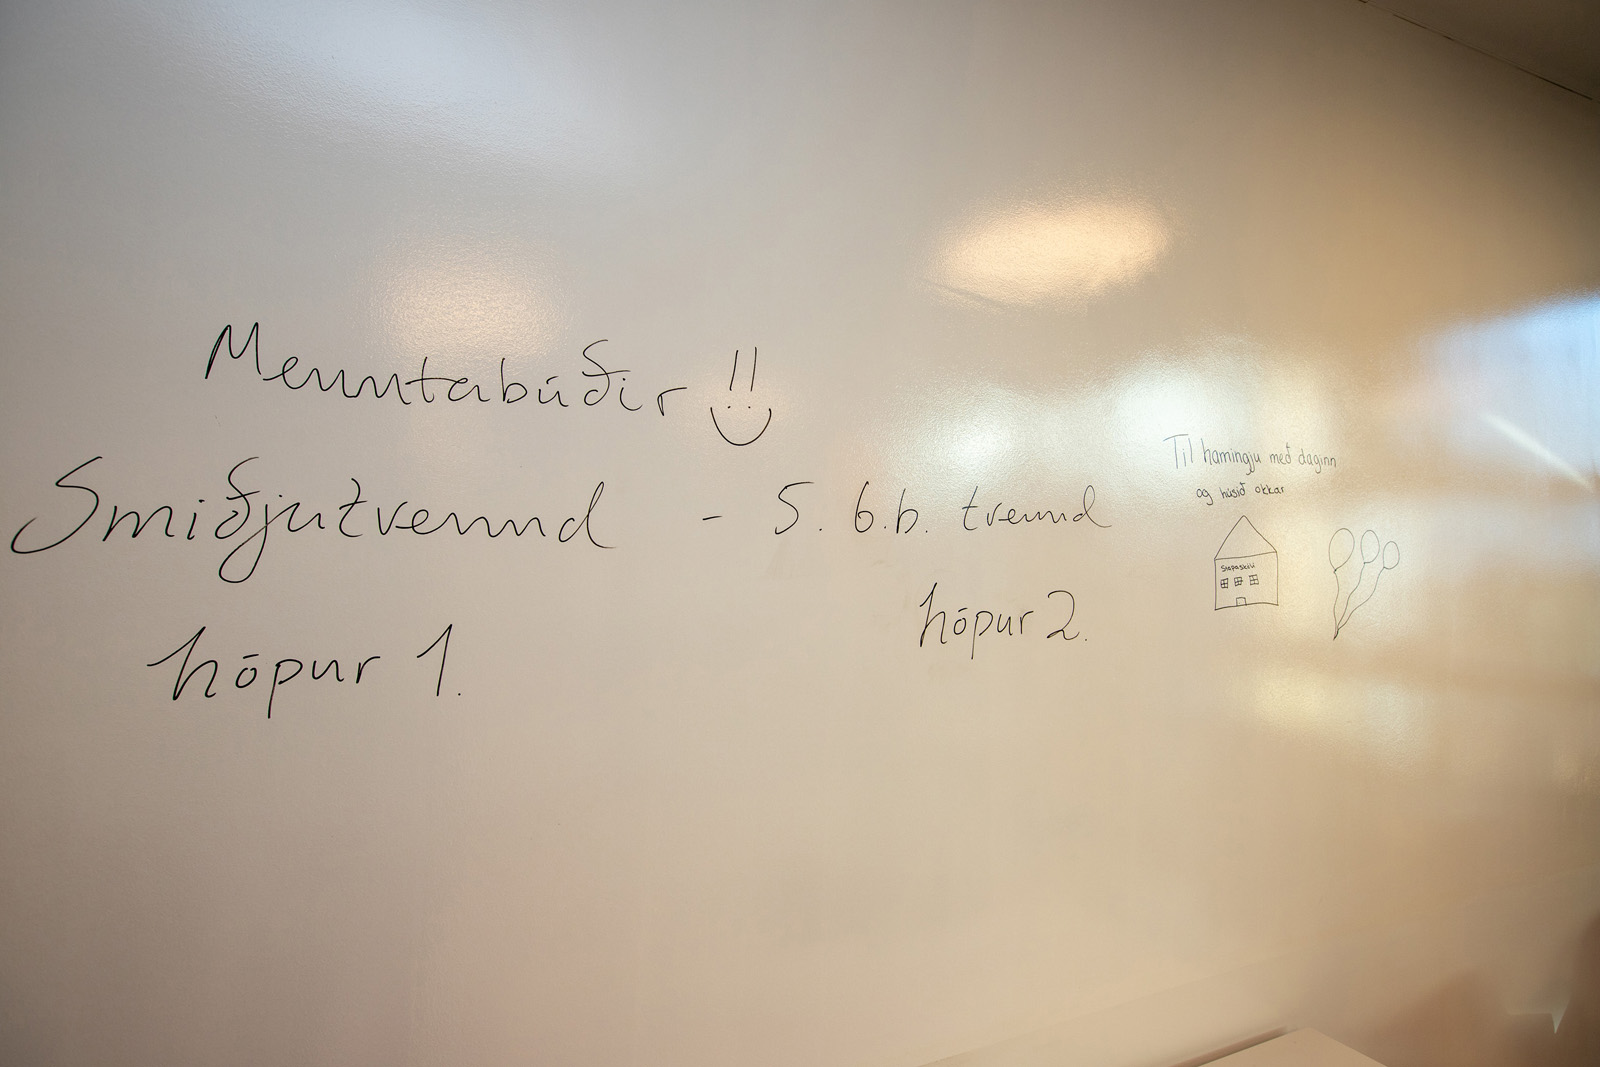 Menntabúðir !!
Smiðjutvennd - 5. 6.b. tvennd
hópur 1.
hópur 2.
Til hamingju með daginn
og húsið okkar
Stapaskóli